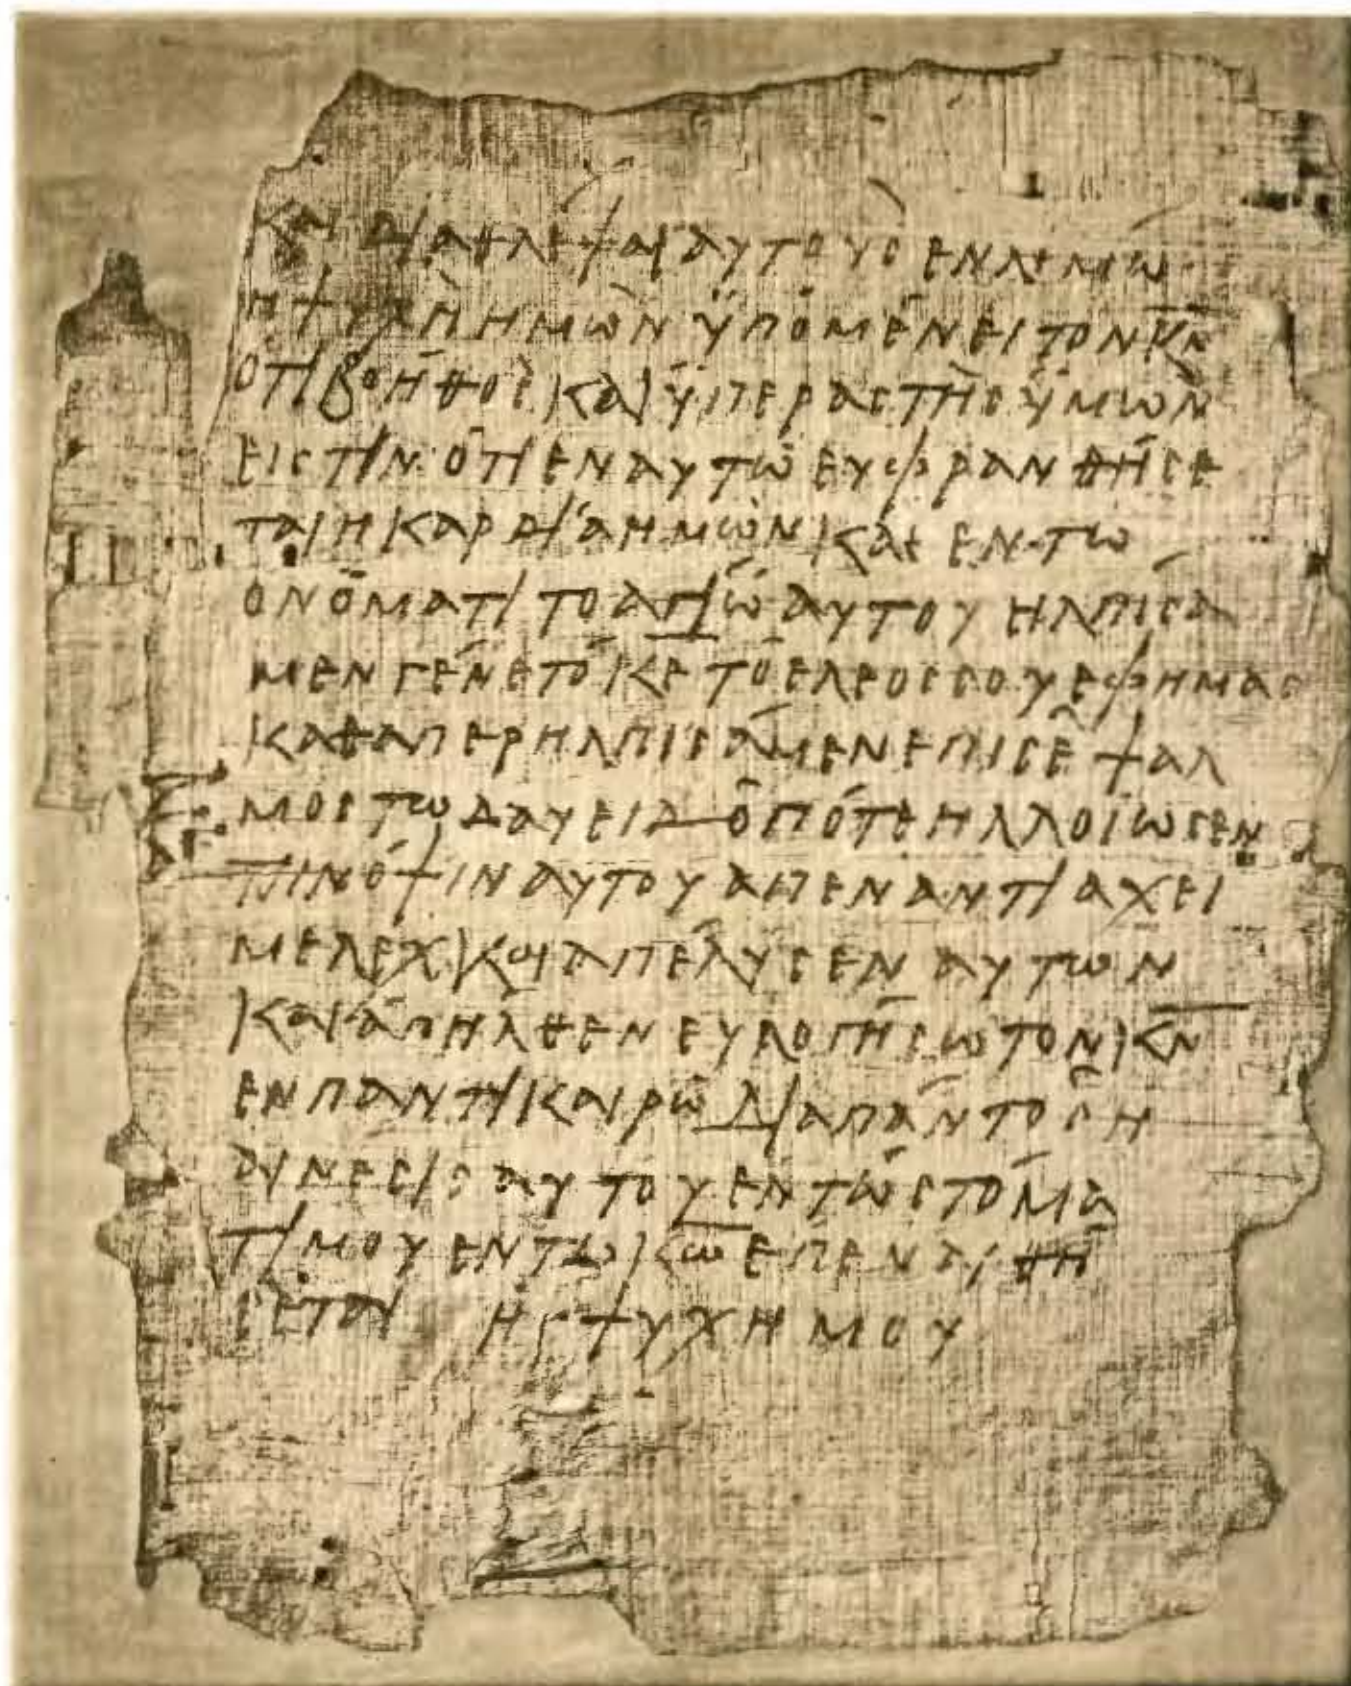 και διαθλεψαι αυτους εν λειμω
η ψυχὴ ημὼν ϋπόμένει τον κ̅ν̅
ότι βοήθος και ϋπεραστὴς ϋμὼν
ειστιν ότι εν αυτω ευφρανθήσε
ται η καρδία ημὼν και εν τω
ονόματι το αγιώ αυτου ηλπισά
μεν γένετό κ̅ε̅ τό ελεος σου εφ ημας
καθαπερ ηλπισάμεν επι σε ψαλ
μος τω δαυειδ όπότε ηλλοίωσεν
την όψιν αυτου απεναντι αχει
μελεχ και απέλυσεν αυτων
και άπηλθεν ευλογήσω τον κ̅ν̅
εν παντι καιρω διαπάντος η
αινεσις αυτου εν τώ στόμα
τι μου εν τω κ̅ω̅ επεναιθή
σεται ης ψυχη μου